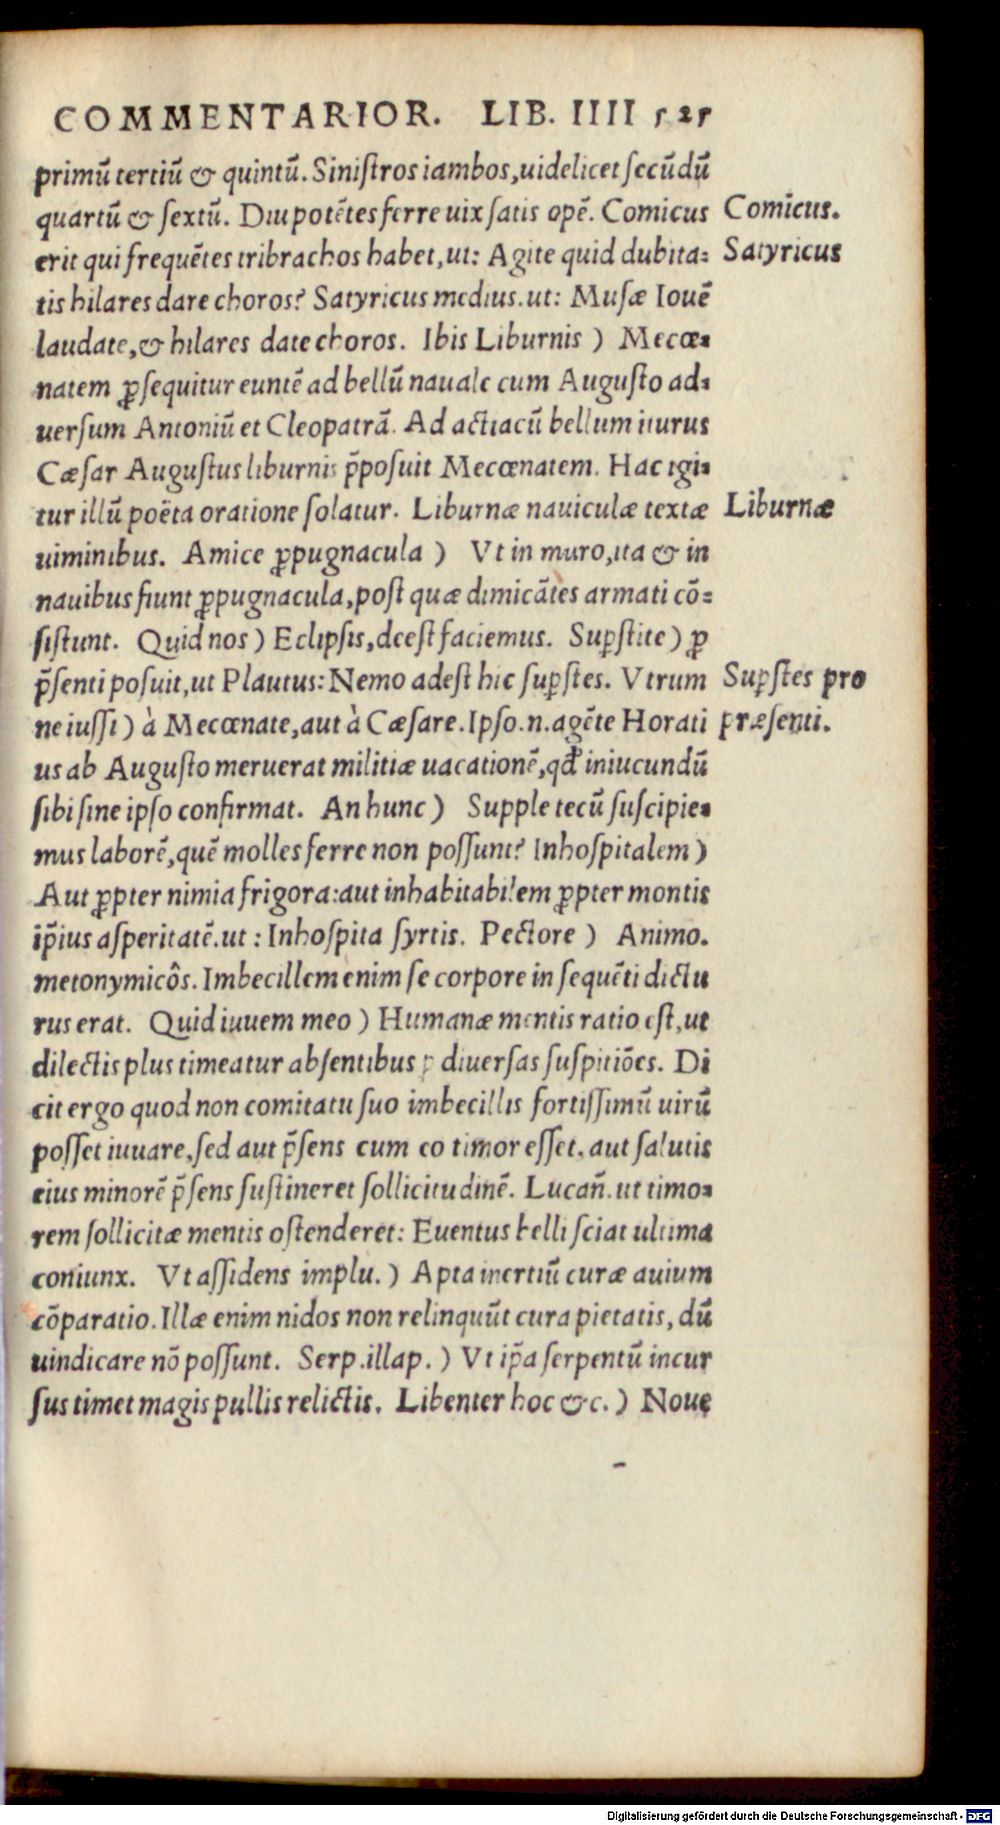 COMMENTARIOR. LIB. IIII 525
primũ tertiũ & quintũ. Siniſtros iambos,uidelicet ſecũdũ
quartũ & ſextũ. Diu potẽtes ferre uix ſatis opẽ. Comicus
Comicus.
erit qui frequẽtes tribrachos habet,ut: Agite quid dubita⸗
Satyricus
tis hilares dare choros? Satyricus medius.ut: Muſæ Iouẽ
laudate,& hilares date choros. Ibis Liburnis ) Mecœ⸗
natem ꝓſequitur euntẽ ad bellũ nauale cum Auguſto ad⸗
uerſum Antoniũ et Cleopatrã. Ad actiacũ bellum iturus
Cæſar Auguſtus liburnis p̃poſuit Mecœnatem. Hac igi⸗
tur illũ poëta oratione ſolatur. Liburnæ nauiculæ textæ
Liburnæ
uiminibus. Amice ꝓpugnacula ) Vt in muro,ita & in
nauibus fiunt ꝓpugnacula,poſt quæ dimicãtes armati cõ⸗
ſiſtunt. Quid nos ) Eclipſis,deeſt faciemus. Suꝑſtite ) ꝓ
p̃ſenti poſuit,ut Plautus: Nemo adeſt hic ſuꝑſtes. Vtrum
Suꝑſtes pro
ne iuſſi ) à Mecœnate,aut à Cæſare. Ipſo.n.agẽte Horati
præſenti.
us ab Auguſto meruerat militiæ uacationẽ,qđ iniucundũ
ſibi ſine ipſo confirmat. An hunc ) Supple tecũ ſuſcipie⸗
mus laborẽ,quẽ molles ferre non poſſunt? Inhoſpitalem )
Aut ꝓpter nimia frigora:aut inhabitabilem ꝓpter montis
ip̃ius aſperitatẽ.ut : Inhoſpita ſyrtis. Pectore ) Animo.
metonymicôs. Imbecillem enim ſe corpore in ſequẽti dictu
rus erat. Quid iuuem meo ) Humanæ mentis ratio eſt,ut
dilectis plus timeatur abſentibus ꝑ diuerſas ſuſpitiões. Di
cit ergo quod non comitatu ſuo imbecillis fortiſſimũ uirũ
poſſet iuuare,ſed aut p̃ſens cum eo timor eſſet, aut ſalutis
eius minorẽ p̃ſens ſuſtineret ſollicitudinẽ. Lucañ.ut timo⸗
rem ſollicitæ mentis oſtenderet: Euentus belli ſciat ultima
coniunx. Vt aſſidens implu. ) Apta inertiũ curæ auium
cõparatio. Illæ enim nidos non relinquũt cura pietatis, dũ
uindicare nõ poſſunt. Serp.illap. ) Vt ip̃a ſerpentũ incur
ſus timet magis pullis relictis. Libenter hoc &c. ) Noue
Digitalisierung gefördert durch die Deutsche Forschungsgemeinschaft - DFG